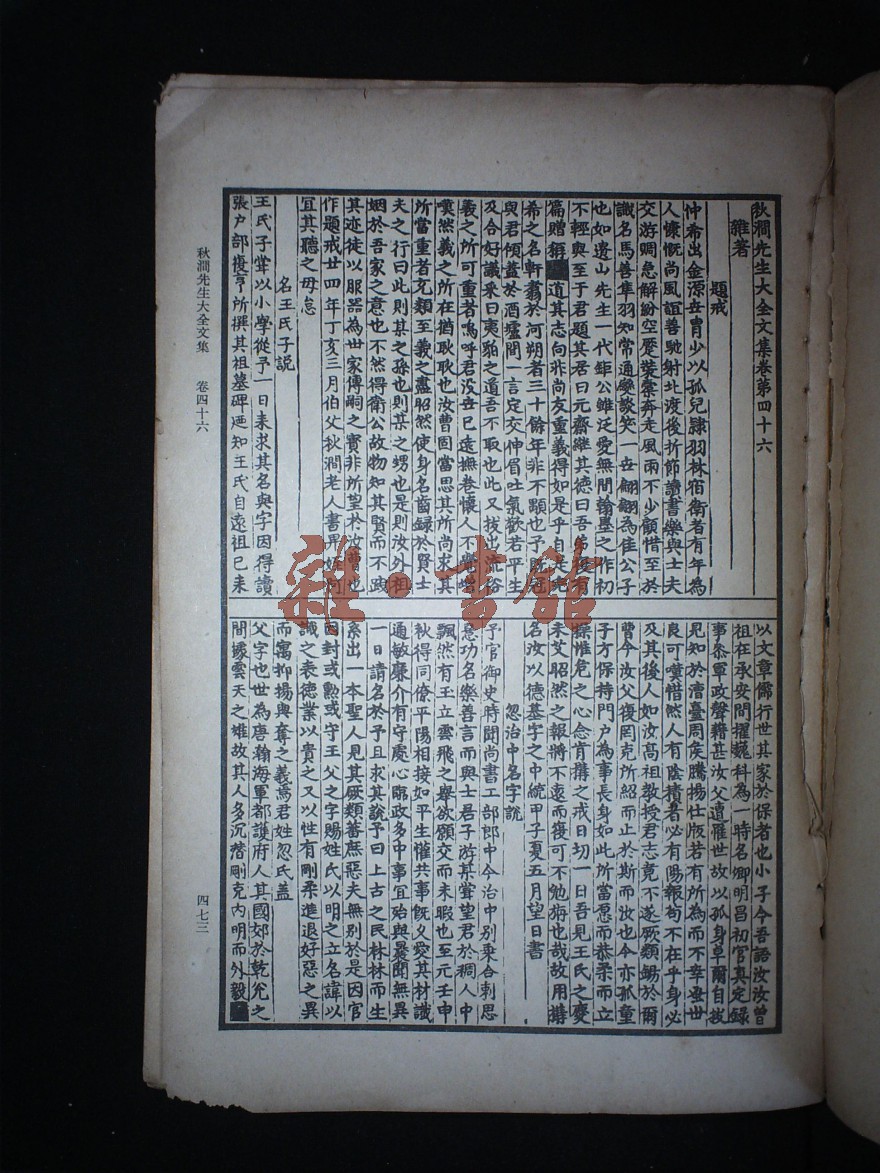 秋澗先生大全文集卷第四十六
雜著
題戒
仲希出金源世胄少以孤兒隸羽林宿衛者有年為
人慷慨尚風誼善馳射北渡後折節讀書樂與士夫
交游賙急解紛空壓裝橐奔走風雨不少顧惜至於
識名馬善隼羽知常通變談笑一世翩翩為佳公子
也如遺山先生一代鉅公雖泛愛無間翰墨之作初
不輕與至于君題其居曰元齋繼其德曰吾弟復有
篇贈猶 道其志向非尚友重義得如是乎自是忠
希之名軒翥於河朔者三十餘年非不顯也予既冠
與君傾蓋於酒壚間一言定交伸眉吐氣歡若平生
及合好議采曰夷貊之道吾不取也此又拔出流俗
義之所可重者嗚呼君没世已遠撫卷懷人不覺增
嘆然義之所在猶耿耿也汝曹固當思其所尚求其
所當重者充類至義之盡昭然使身名齒録於賢士
夫之行曰此則某之孫也則某之甥也是則汝外祖
姻於吾家之意也不然得衛公故物知其賢而不踐
其迹徒以服器為世家傳嗣之實非所望於汝曹也
作題戒廿四年丁亥三月伯父秋澗老人書畀姪阿
宜其聽之毋怠
名王氏子說
王氏子葦以小學從予一日来求其名與字因得讀
張户部復亨所撰其祖墓碑廼知王氏自遠祖已来
以文章儒行世其家於保者也小子今吾語汝汝曾
祖在承安間擢巍科為一時名卿明昌初官真定録
事叅軍政聲藉甚汝父遭罹世故以孤身卓爾自拔
見知於澶臺周侯騰揚仕版若有所為而不幸蚤世
良可嘆惜然人有陰積者必有陽報苟不在乎身必
及其後人如汝高祖教授君志竟不遂厥類錫於爾
曹今汝父復罔克所紹而止於斯而汝也今亦孤童
子方保持門户為事長身如此所當愿而恭柔而立
操惟危之心念肯搆之戒日切一日吾見王氏之慶
未艾昭然之報將不遠而復可不勉旃也哉故用搆
名汝以德基字之中統甲子夏五月望日書
忽治中名字說
予官御史時聞尚書工部郎中今治中别乘合剌思
急功名樂善言而與士君子游葦聳望君於稠人中
飄然有王立雲飛之舉欲願交而未暇也至元壬申
秋得同僚平陽相接如平生懽共事既乆愛其材識
通敏廉介有守處心臨政多中事宜始與曩聞無異
一日請名於予且求其說予曰上古之民林林而生
系出一本聖人見其厥類蕃庶惡夫無别於是因官
因封或勲或守王父之字賜姓氏以明之立名諱以
識之表德業以貴之又以性有剛柔進退好惡之異
而寓抑揚與奪之義焉君姓忽氏蓋
父字也世為唐瀚海軍都護府人其國郊於乾兊之
間據雲天之雄故其人多沉濳剛克内明而外毅
秋澗先生大全文集 卷四十六
四七三
雜·書館